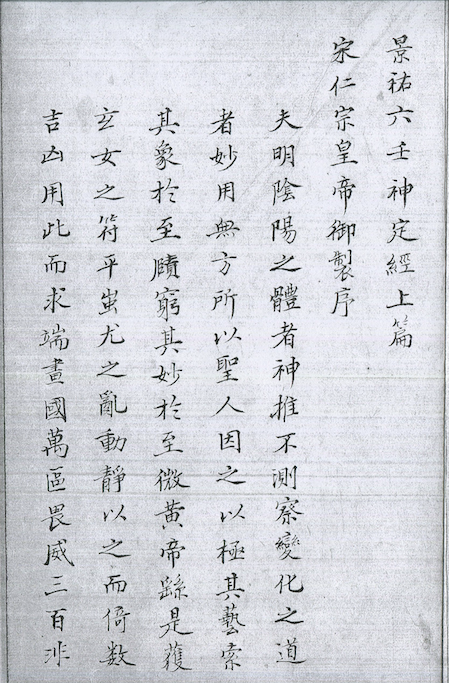 景祐六壬神定經上篇
宋仁宗皇帝御製序
夫明陰陽之體者神推不測察變化之道
者妙用無方所以聖人因之以極其藝索
其象於至賾窮其妙於至微黃帝繇是蒦
玄女之符平蚩尤之亂動靜以之而倚数
吉凶用此而求端畫國萬區畏威三百非